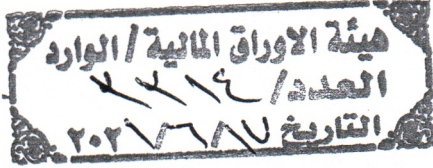 هيئة الاوراق المالية/الوارد
العدد/ ٢٢١٤
التاريخ ٧/٦/٢٠٢١